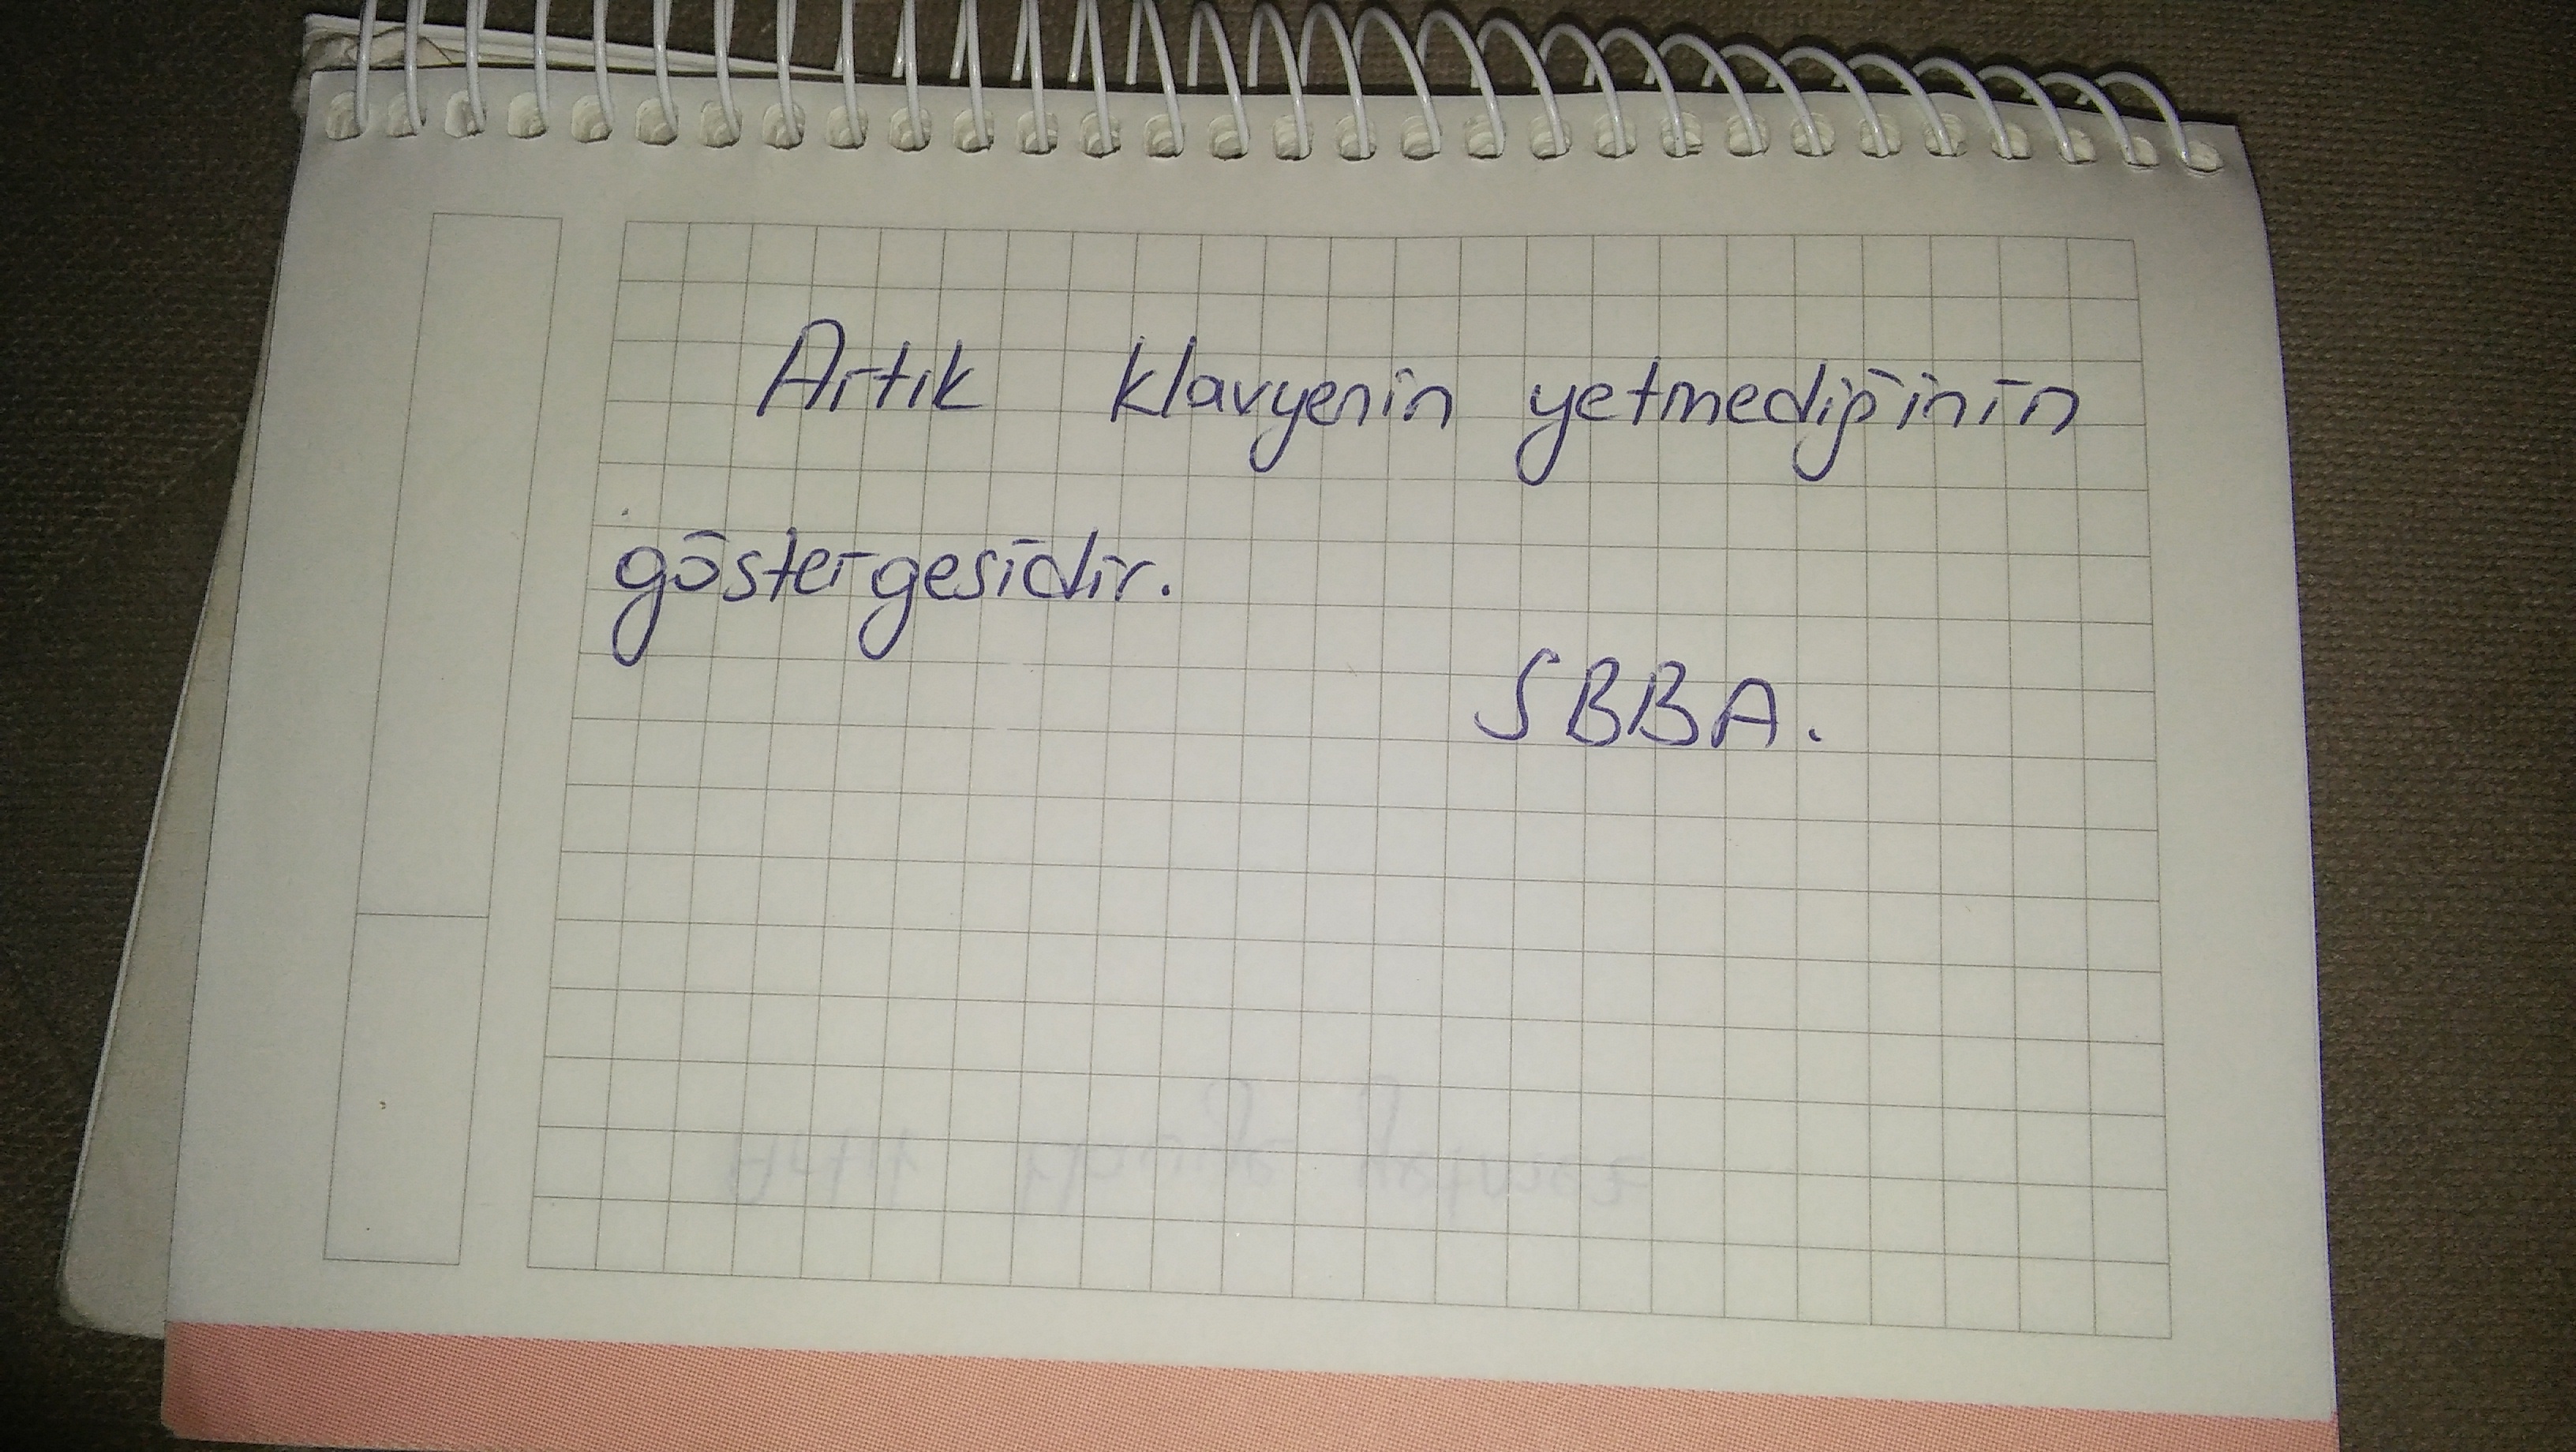 Artık klavyenin yetmediğinin
göstergesidir.
SBBA.